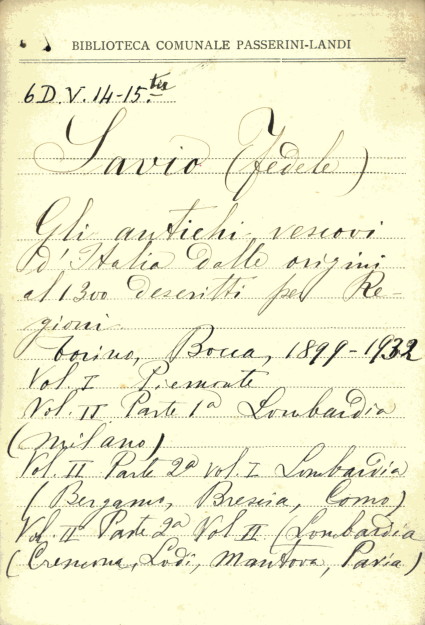 BIBLIOTECA COMUNALE PASSERINI-LANDI
6 D. V. 14-15.ter
Savio (Fedele)
Gli antichi vescovi
d'Italia dalle origini
al 1300 descritti per Re-
gioni.
Torino, Bocca, 1899-1932
Vol. I Piemonte
Vol. II Parte 1a Lombardia
(Milano)
Vol. II Parte 2a Vol. I Lombardia
(Bergamo, Brescia, Como)
Vol. II Parte 2a Vol II (Lombardia
(Cremona, Lodi, Mantova, Pavia)